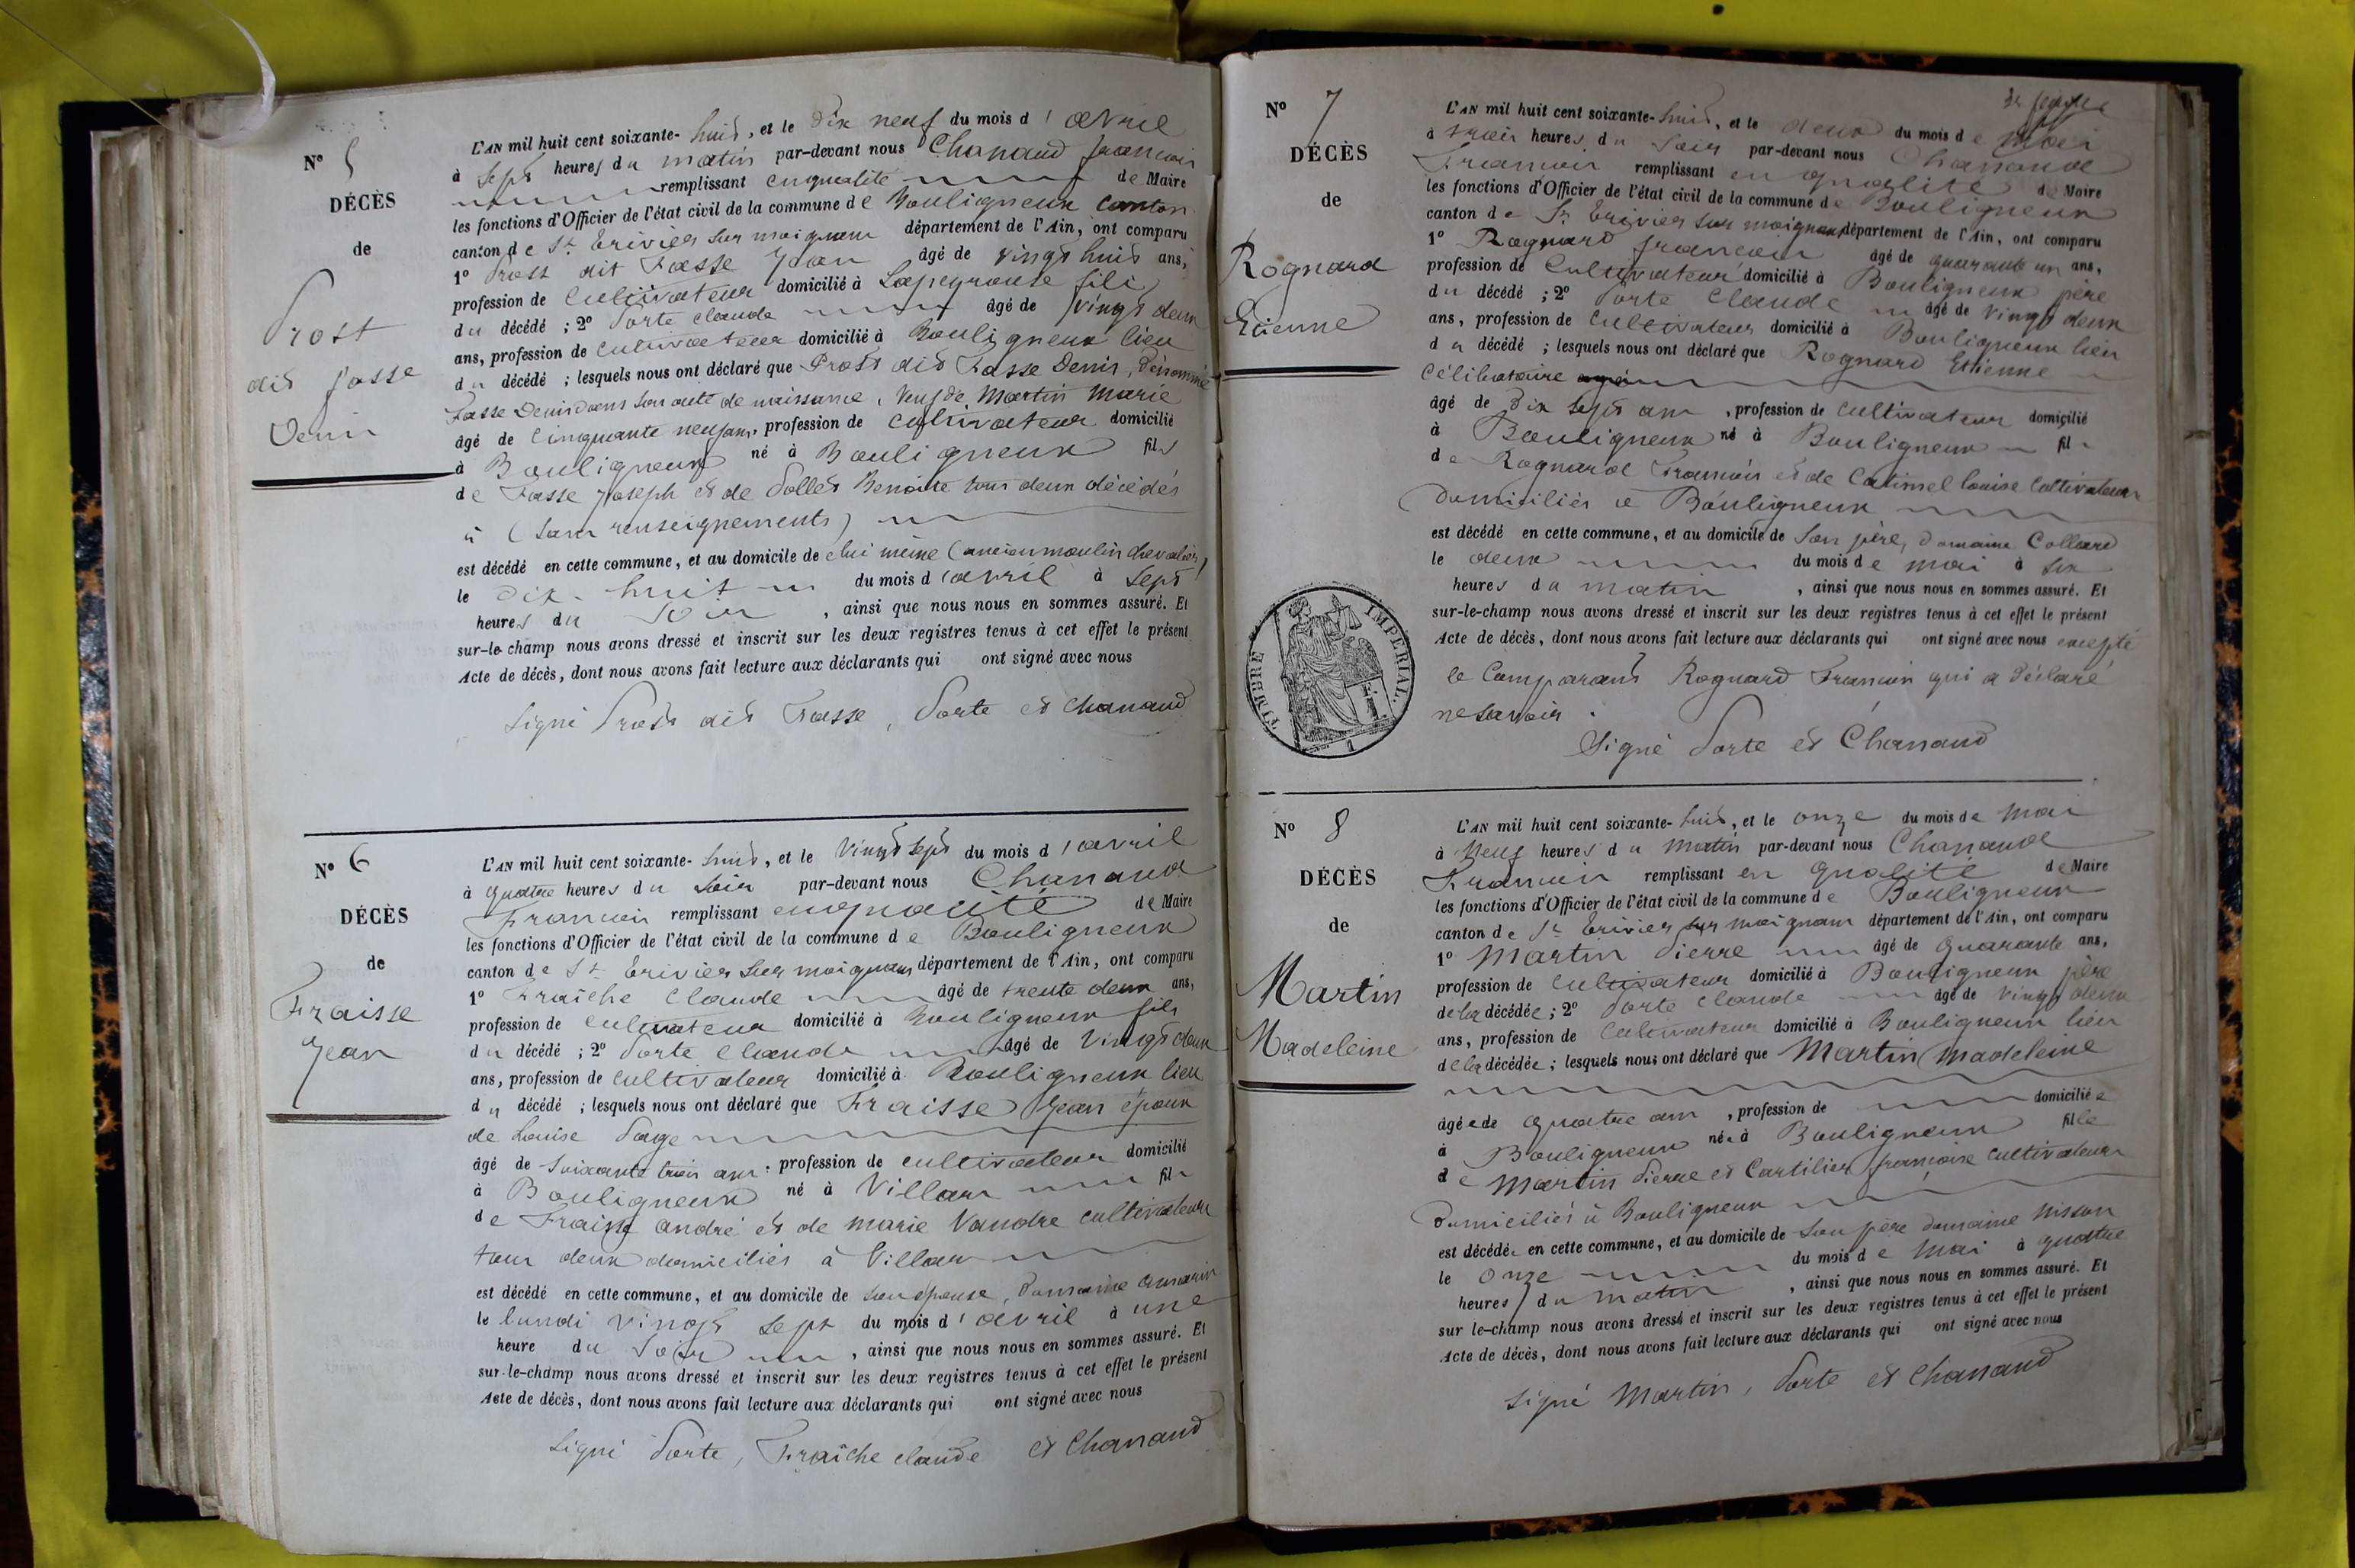 N° 5
DÉCÈS
de
Prost
dit Fasse
Denis
L'AN mil huit cent soixante-huit, et le dix neuf du mois d'avril
à sept heures du matin par-devant nous Chanaud françois
remplissant en qualité de Maire
les fonctions d'Officier de l'état civil de la commune de Bouligneux canton
canton de St Trivier sur moignans département de l'Ain, ont comparu
1° Prost dit Fasse Jean âgé de vingt huit ans,
profession de Cultivateur domicilié à Lapeyrouse fils
du décédé ; 2° Porte Claude âgé de vingt deux
ans, profession de Cultivateur domicilié à Bouligneux lieu
du décédé ; lesquels nous ont déclaré que Prost dit Fasse Denis, dénommé
Fasse Denis dans son acte de naissance, veuf de Martin Marie
âgé de cinquante neuf ans, profession de cultivateur domicilié
à Bouligneux né à Bouligneux fils
de Fasse Joseph et de Pollet Benoite tous deux décédés
à (sans renseignements)
est décédé en cette commune, et au domicile de celui même (ancien moulin chevalier)
le dix-huit du mois d'avril à sept
heures du soir, ainsi que nous nous en sommes assuré. Et
sur-le champ nous avons dressé et inscrit sur les deux registres tenus à cet effet le présent
Acte de décès, dont nous avons fait lecture aux déclarants qui ont signé avec nous
Signé Prost dit Fasse, Porte et Chanaud
N° 6
DÉCÈS
de
Fraisse
Jean
L'AN mil huit cent soixante-huit, et le vingt sept du mois d'avril
à quatre heures du soir par-devant nous Chanaud
Francois remplissant en qualité de Maire
les fonctions d'Officier de l'état civil de la commune de Bouligneux
canton de St Trivier sur moignans département de l'Ain, ont comparu
1° Fraîche Claude âgé de trente deux ans,
profession de cultivateur domicilié à Bouligneux fils
du décédé ; 2° Porte Claude âgé de vingt deux
ans, profession de cultivateur domicilié à Bouligneux lieu
du décédé ; lesquels nous ont déclaré que Fraisse Jean époux
de Louise Page
âgé de soixante trois ans, profession de cultivateur domicilié
à Bouligneux né à Villars fils
de Fraisse André et de Marie Vandre cultivateurs
tous deux domiciliés à Villars
est décédé en cette commune, et au domicile de son épouse, Domaine
le lundi vingt sept du mois d'avril à une
heure du soir, ainsi que nous nous en sommes assuré. Et
sur-le-champ nous avons dressé et inscrit sur les deux registres tenus à cet effet le présent
Acte de décès, dont nous avons fait lecture aux déclarants qui ont signé avec nous
Signé Porte, Fraîche claude et Chanaud
N° 7
DÉCÈS
de
Rognard
Etienne
L'AN mil huit cent soixante-huit, et le deux du mois de Mai
à trois heures du soir par-devant nous Chanaud
Francois remplissant en qualité de Maire
les fonctions d'Officier de l'état civil de la commune de Bouligneux
canton de St Trivier sur moignans département de l'Ain, ont comparu
1° Rognard françois âgé de quarante un ans,
profession de Cultivateur domicilié à Bouligneux père
du décédé ; 2° Porte Claude âgé de vingt deux
ans, profession de Cultivateur domicilié à Bouligneux lieu
du décédé ; lesquels nous ont déclaré que Rognard Etienne
célibataire
âgé de dix sept ans, profession de cultivateur domicilié
à Bouligneux né à Bouligneux fils
de Rognard Francois et de Catimel louise Cultivateurs
domiciliés à Bouligneux
est décédé en cette commune, et au domicile de son père, domaine Collard
le deux du mois de mai à six
heures du matin, ainsi que nous nous en sommes assuré. Et
sur-le-champ nous avons dressé et inscrit sur les deux registres tenus à cet effet le présent
Acte de décès, dont nous avons fait lecture aux déclarants qui ont signé avec nous excepté
le Comparant Rognard Francois qui a déclaré
ne savoir.
Signé Porte et Chanaud
TIMBRE IMPERIAL
N° 8
DÉCÈS
de
Martin
Madeleine
L'AN mil huit cent soixante-huit, et le onze du mois de Mai
à Neuf heures du matin par-devant nous Chanaud
Francois remplissant en qualité de Maire
les fonctions d'Officier de l'état civil de la commune de Bouligneux
canton de St Trivier sur moignans département de l'Ain, ont comparu
1° Martin Pierre âgé de quarante ans,
profession de Cultivateur domicilié à Bouligneux père
de la décédée ; 2° Porte Claude âgé de vingt deux
ans, profession de Cultivateur domicilié à Bouligneux lieu
de la décédée ; lesquels nous ont déclaré que Martin Madeleine
âgée de quatre ans, profession de domiciliée
à Bouligneux née à Bouligneux fille
de Martin Pierre et Cartilier françoise cultivateurs
domiciliés à Bouligneux
est décédée en cette commune, et au domicile de son père domaine Nisson
le onze du mois de Mai à quatre
heures du matin, ainsi que nous nous en sommes assuré. Et
sur le-champ nous avons dressé et inscrit sur les deux registres tenus à cet effet le présent
Acte de décès, dont nous avons fait lecture aux déclarants qui ont signé avec nous
Signé Martin, Porte et Chanaud